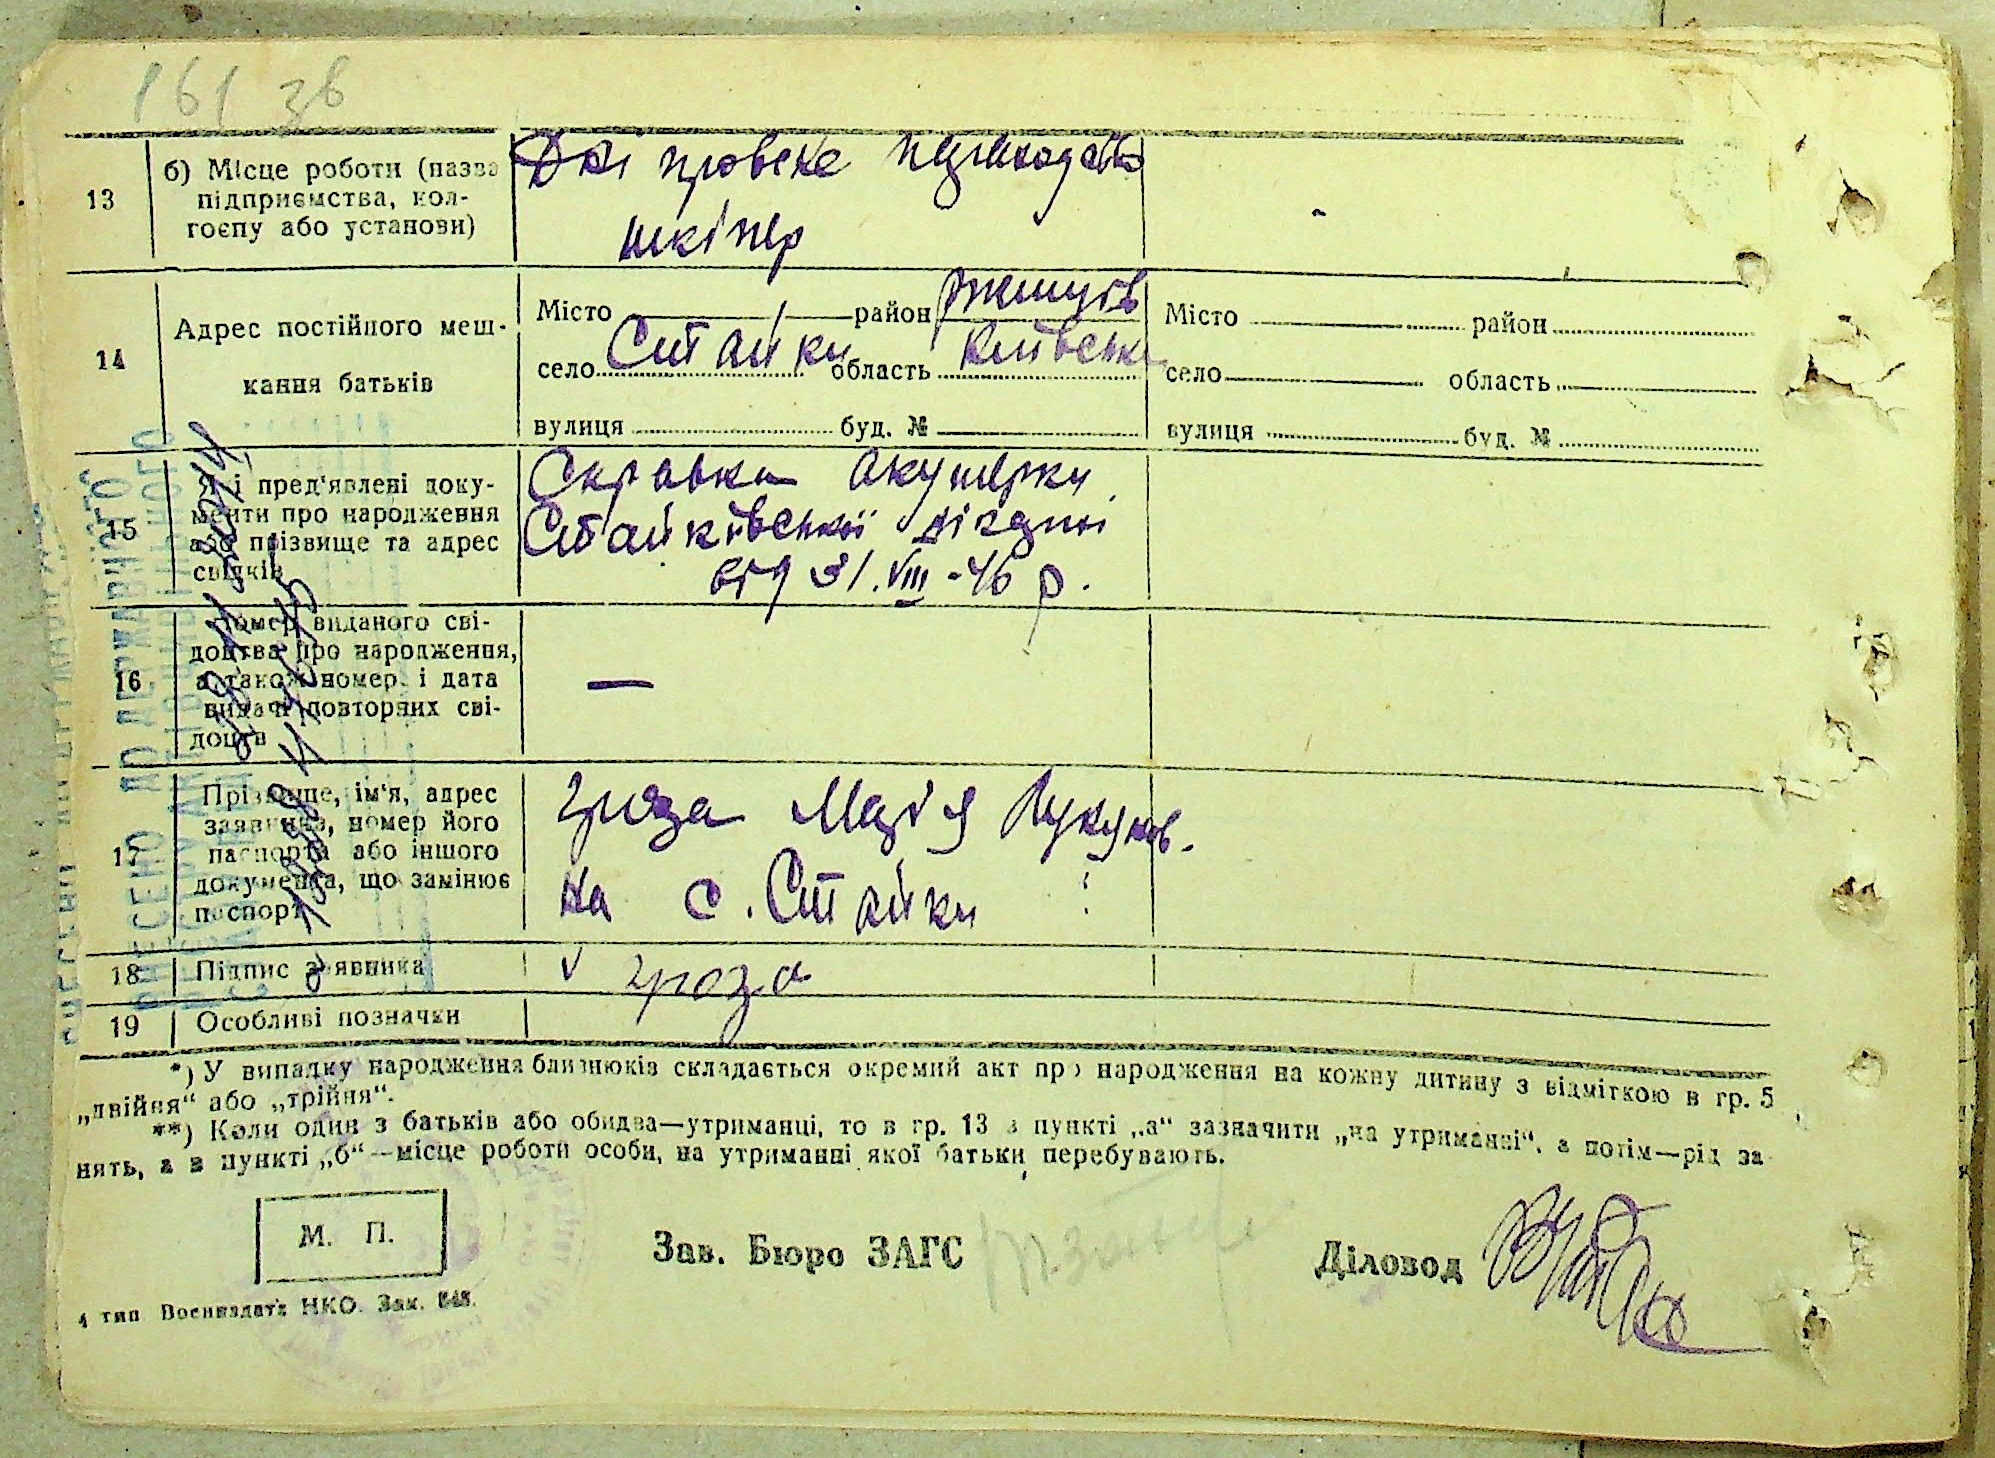 161 зв
13
б) Місце роботи (назва
підприємства, кол-
госпу або установи)
шкіпер
14
Адрес постійного меш-
кання батьків
Місто район Ржищів
село Стайки область Київськ
вулиця буд. №
Місто район
село область
вулиця буд. №
15
Які пред'явлені доку-
менти про народження
або прізвище та адрес
свідків
Справка акушерки
Стайківської лікарні
від 31.VIII-46 р.
16
Номер виданого сві-
доцтва про народження,
а також номер і дата
видачі повторних сві-
доцтв
—
17
Прізвище, ім'я, адрес
заявника, номер його
паспорта або іншого
документа, що замінює
паспорт
Гроза Марія
на с. Стайки
18
Підпис заявника
V Гроза
19
Особливі позначки
*) У випадку народження близнюків складається окремий акт про народження на кожну дитину з відміткою в гр. 5
„двійня“ або „трійня“.
**) Коли один з батьків або обидва—утриманці, то в гр. 13 в пункті „а“ зазначити „на утриманні“, а потім—рід за-
нять, а в пункті „б“—місце роботи особи, на утриманні якої батьки перебувають.
М. П.
Зав. Бюро ЗАГС
Діловод
4 тип Воениздата НКО. Зак.